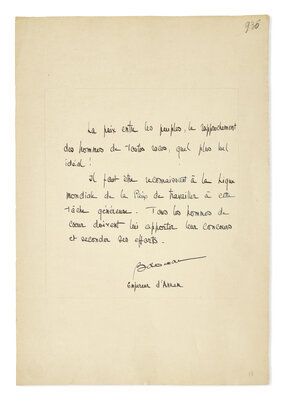 936
La paix entre les peuples, le rapprochement
des hommes de toutes races, quel plus bel
idéal!
Il faut être reconnaissant à la Ligue
mondiale de la Paix de travailler à cette
tâche généreuse. Tous les hommes de
cœur doivent lui apporter leur concours
et seconder ses efforts.
Empereur d'Annam